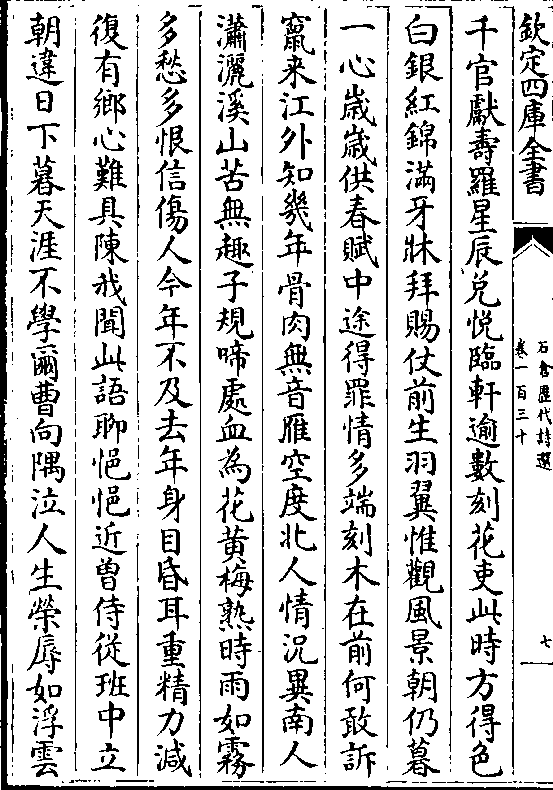 欽定四庫全書
石倉歷代詩選
卷一百三十
七
千官獻壽羅星辰兌悦臨軒逾數刻花吏此時方得色
白銀紅錦滿牙牀拜賜仗前生羽翼惟觀風景朝仍暮
一心歳歳供春賦中途得罪情多端刻木在前何敢訴
竄来江外知幾年骨肉無音雁空度北人情況異南人
瀟灑溪山苦無趣子規啼處血為花黄梅熟時雨如霧
多愁多恨信傷人今年不及去年身目昏耳重精力減
復有鄉心難具陳我聞此語聊悒悒近曽侍從班中立
朝違日下暮天涯不學爾曹向隅泣人生榮辱如浮雲